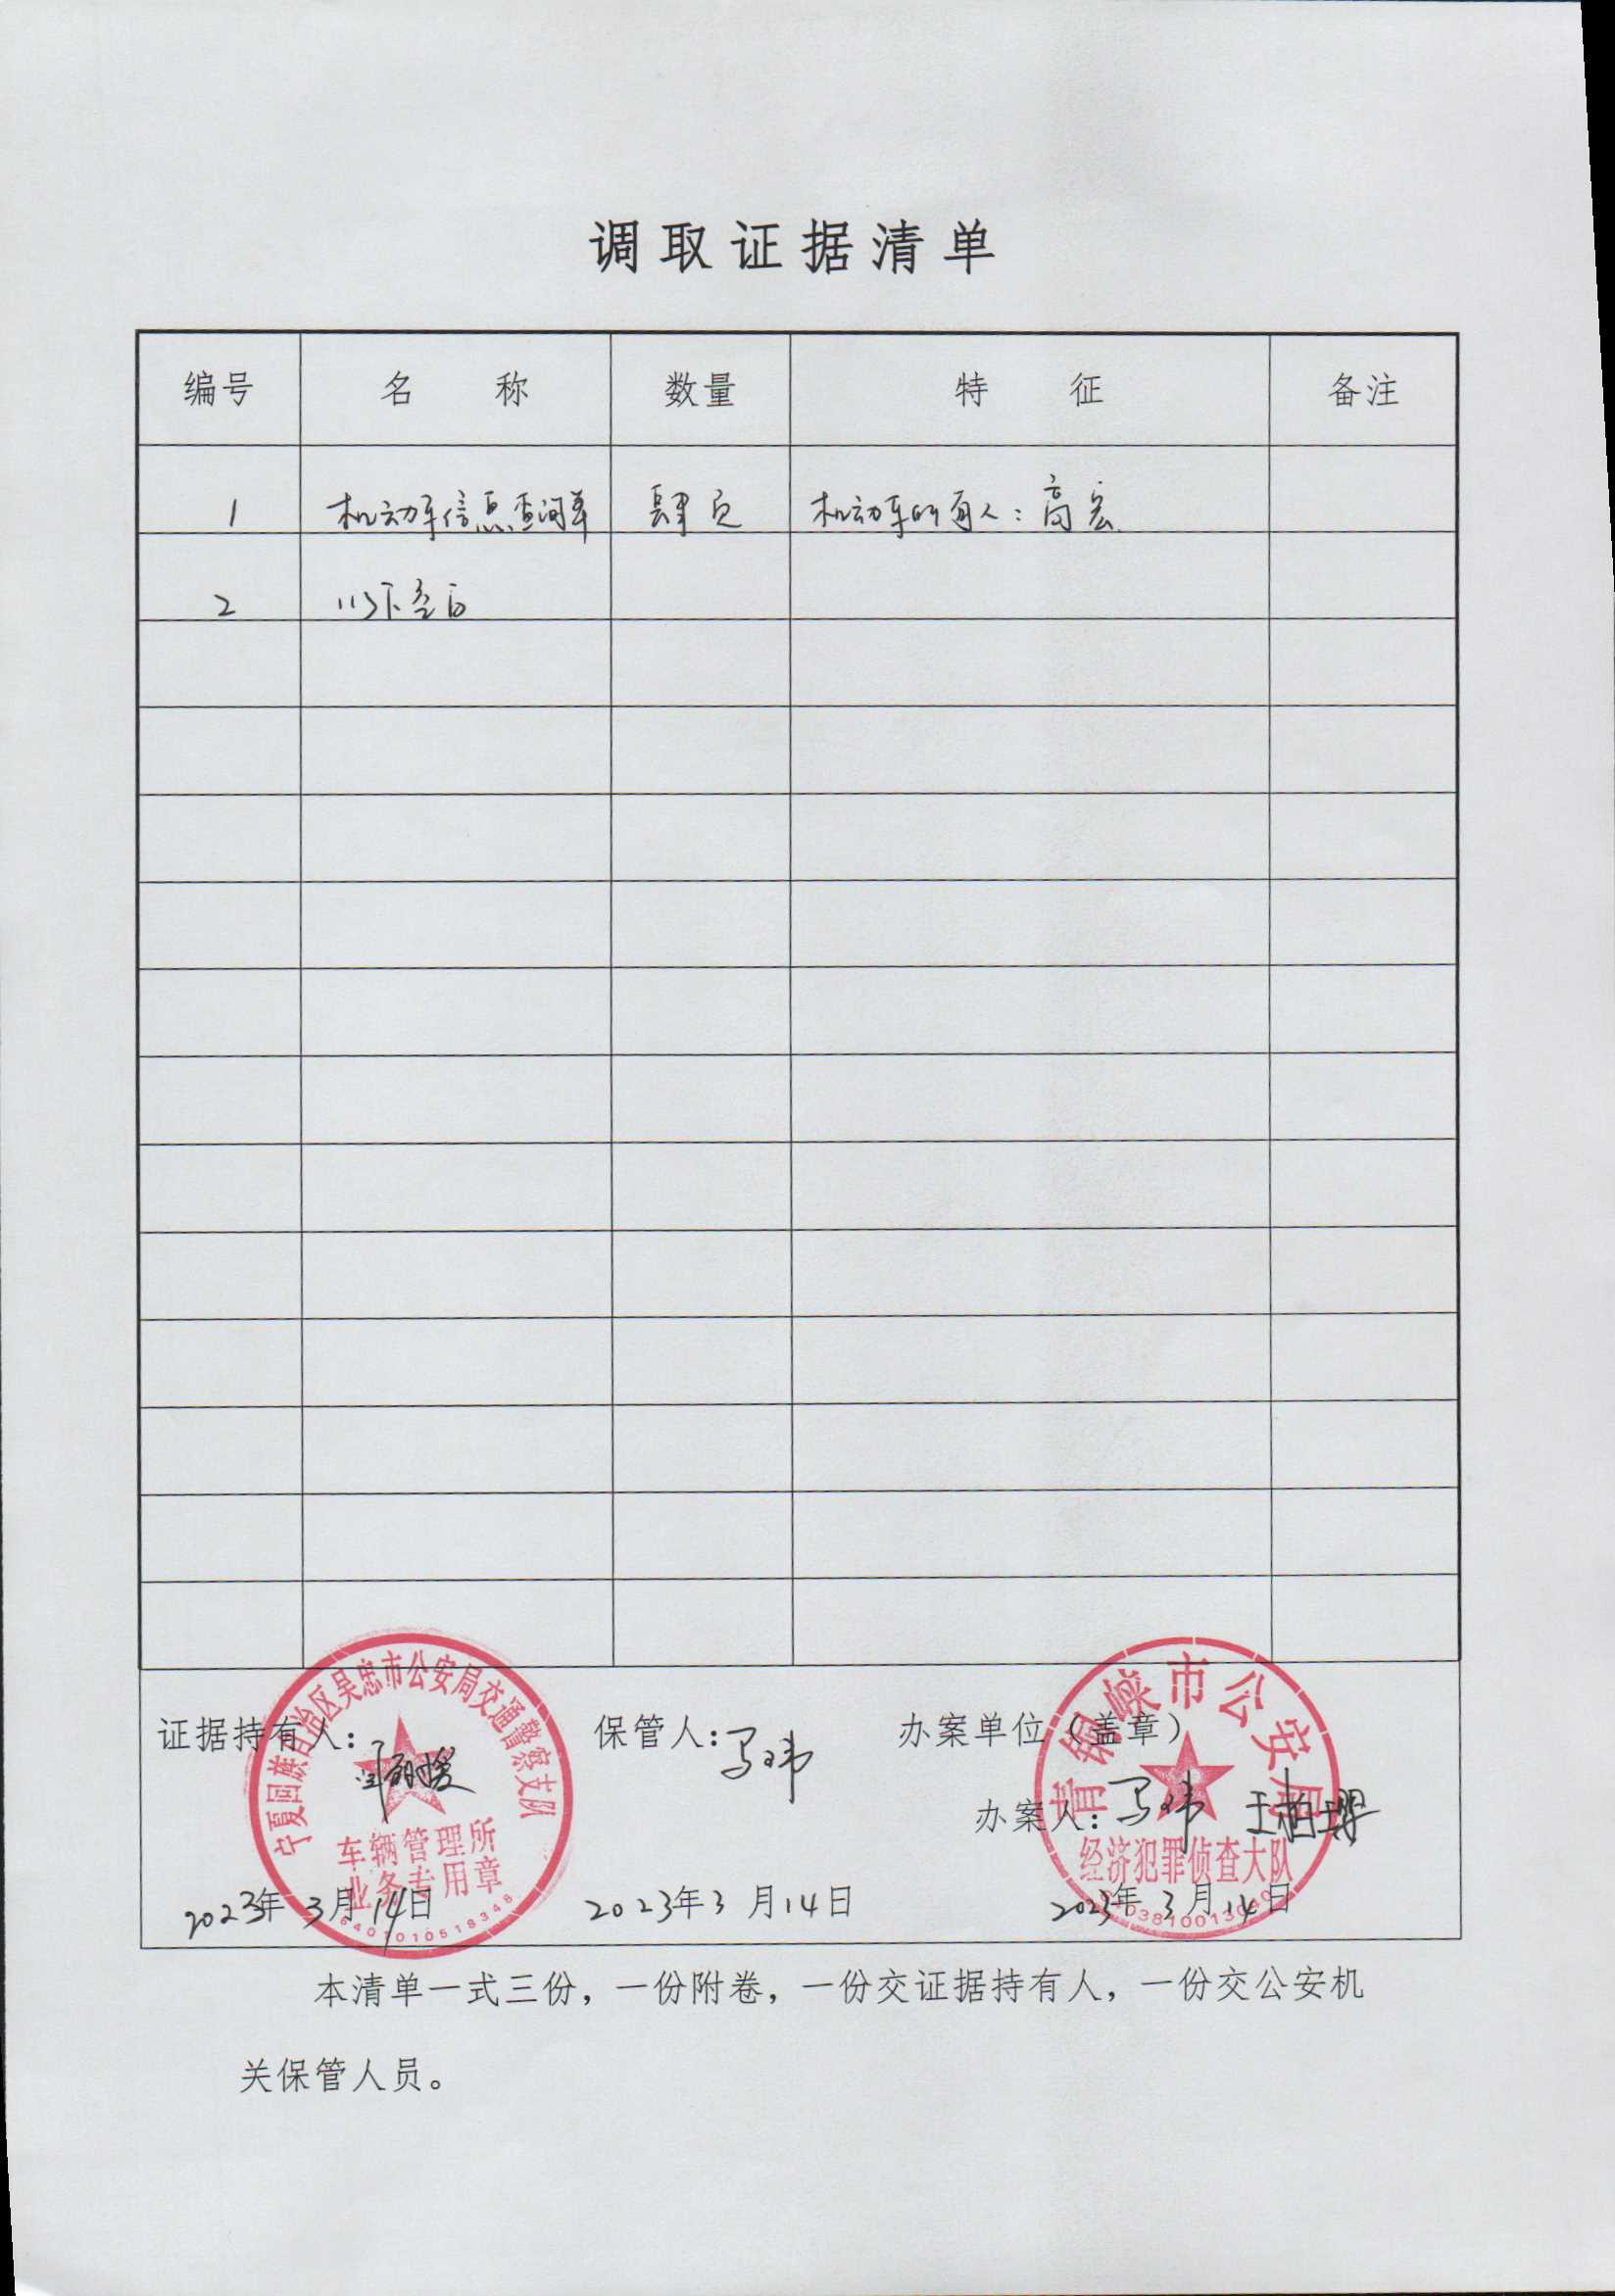 调取证据清单
编号 名称 数量 特征 备注
1 机动车信息查询单 肆页 机动车所有人：高宏
2 以下空白
证据持有人： 保管人：马玮 办案单位（盖章）
办案人：马玮 王柏
2023年3月14日 2023年3月14日 2023年3月14日
宁夏回族自治区吴忠市公安局交通警察支队
车辆管理所
业务专用章
6401010518348
青铜峡市公安局
经济犯罪侦查大队
本清单一式三份，一份附卷，一份交证据持有人，一份交公安机
关保管人员。